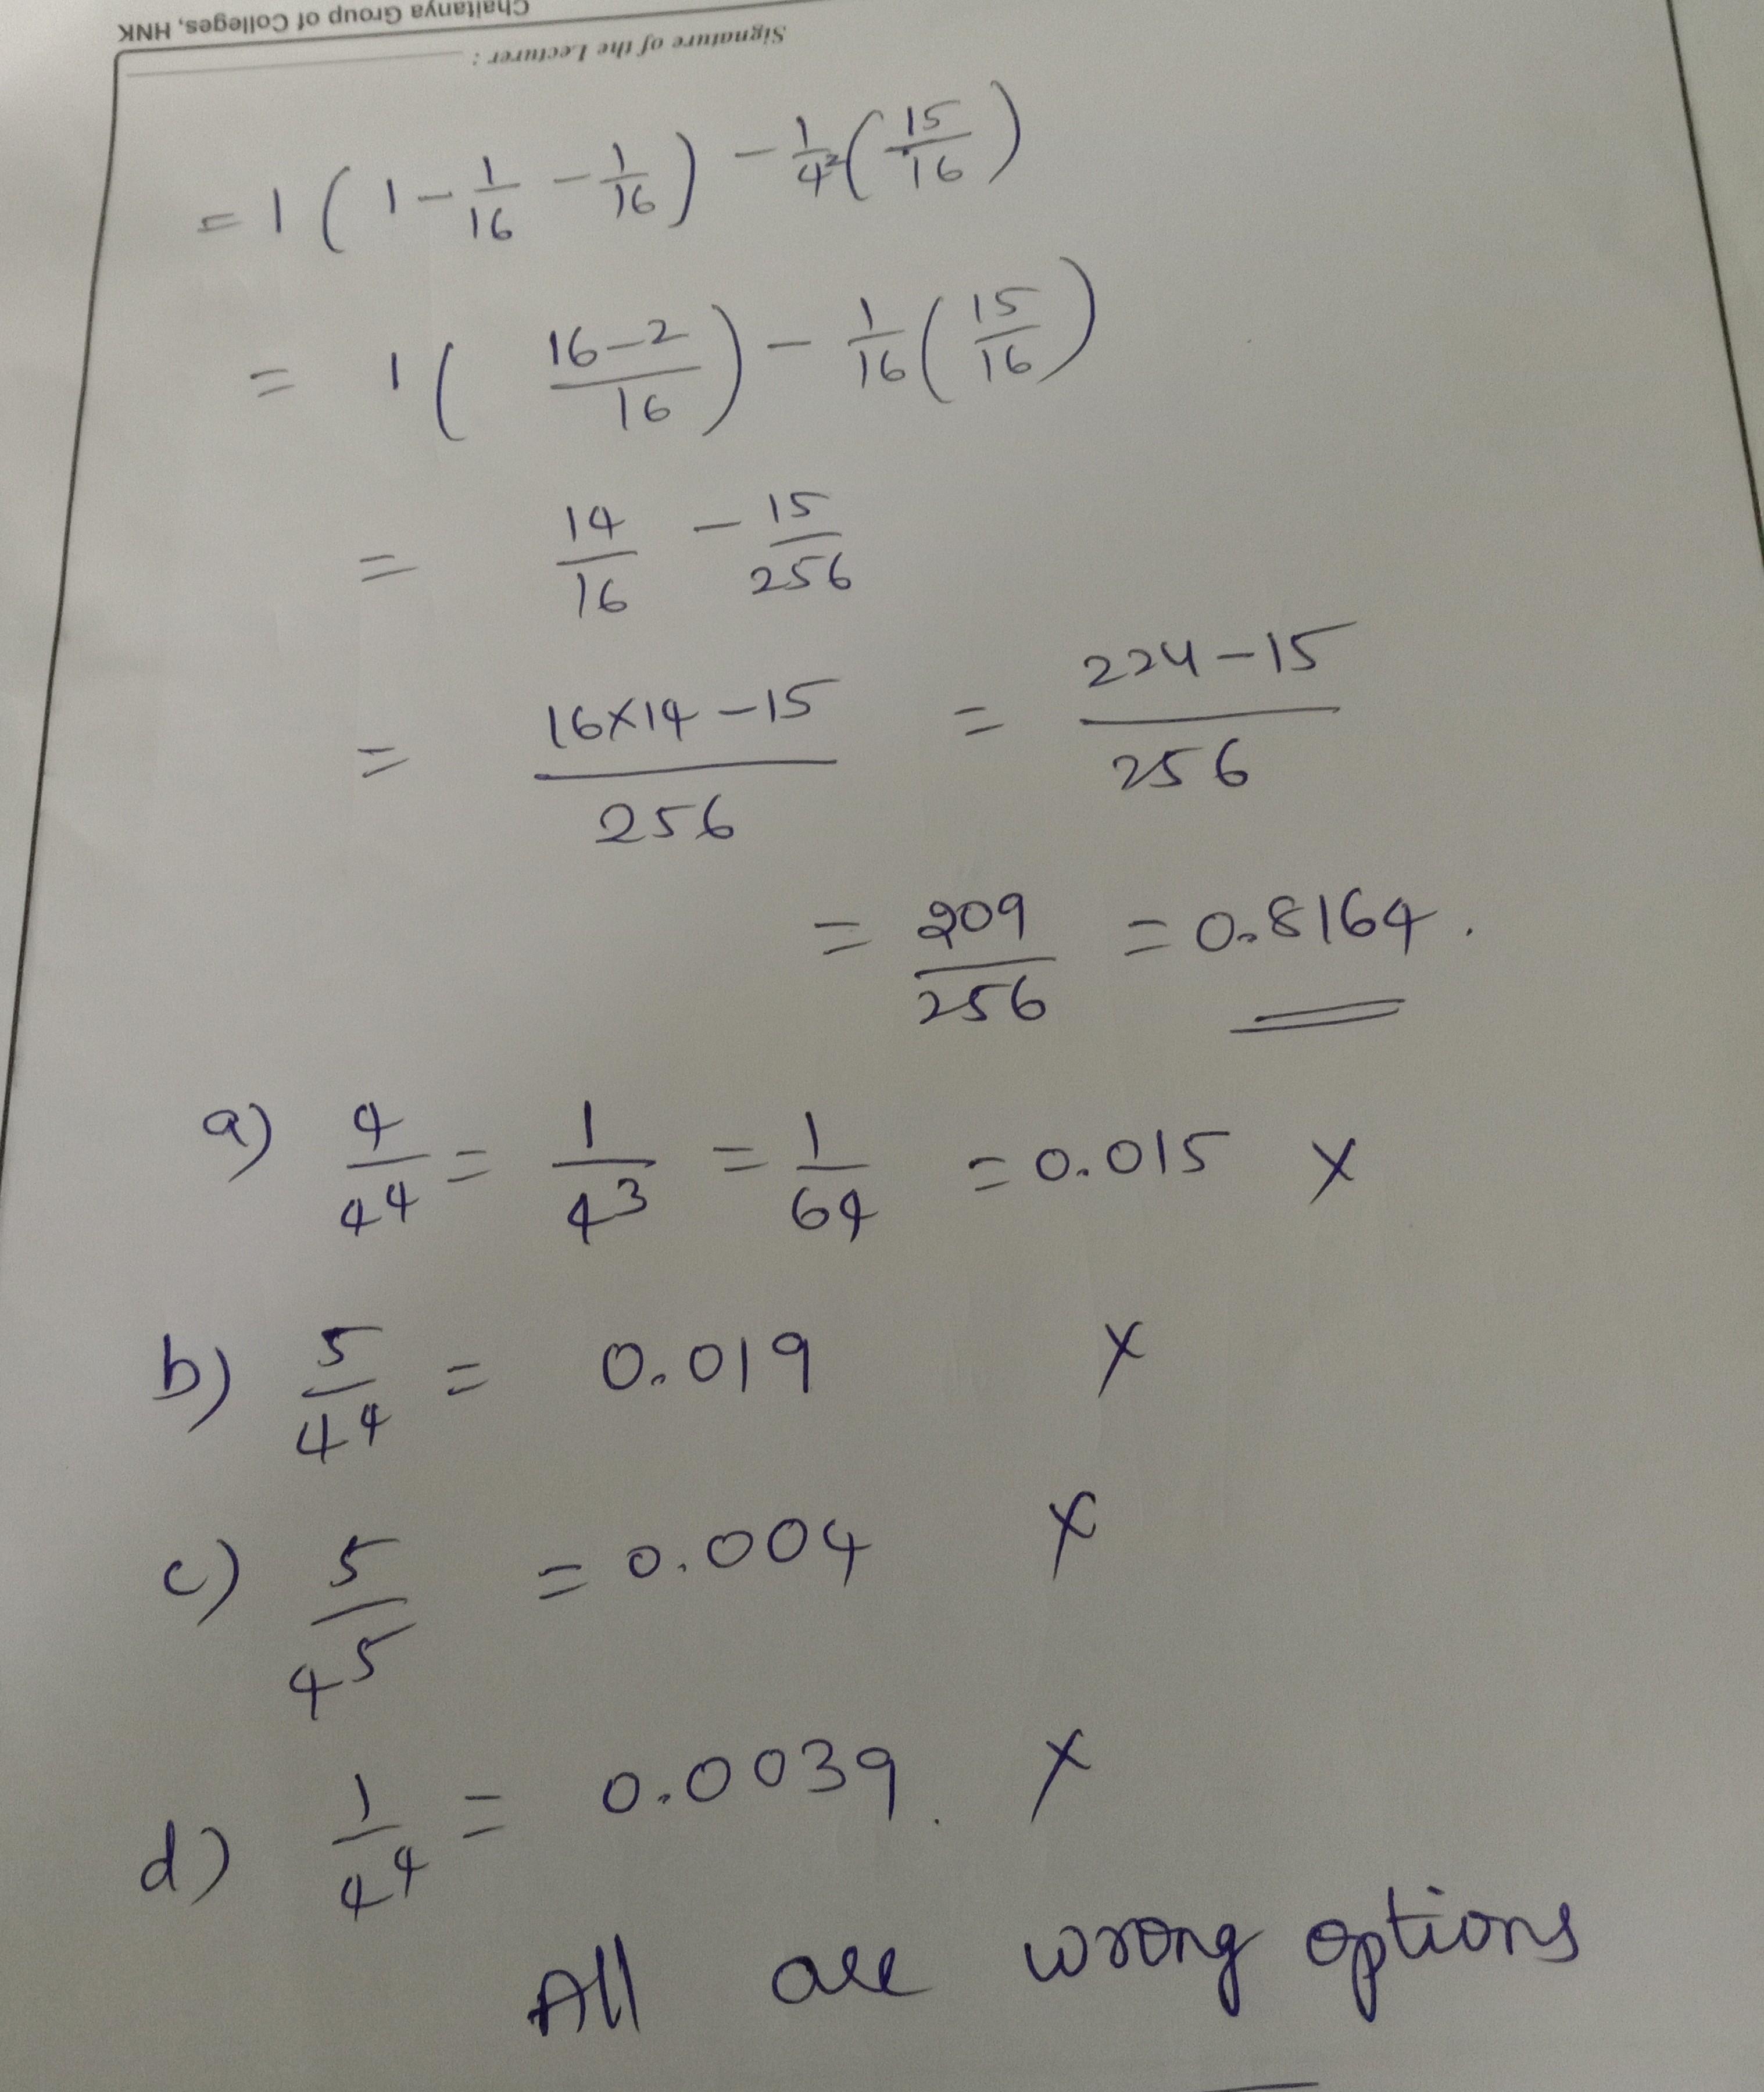 Chaitanya Group of Colleges, HNK
Signature of the Lecturer :
= 1 ( 1 - 1/16 - 1/16 ) - 1/4² ( 15/16 )
= 1 ( (16-2)/16 ) - 1/16 ( 15/16 )
= 14/16 - 15/256
= (16×14-15)/256 = (224-15)/256
= 209/256 = 0.8164.
a) 4/4⁴ = 1/4³ = 1/64 = 0.015 ×
b) 5/4⁴ = 0.019 ×
c) 5/4⁵ = 0.004 ×
d) 1/4⁴ = 0.0039. ×
All are wrong options